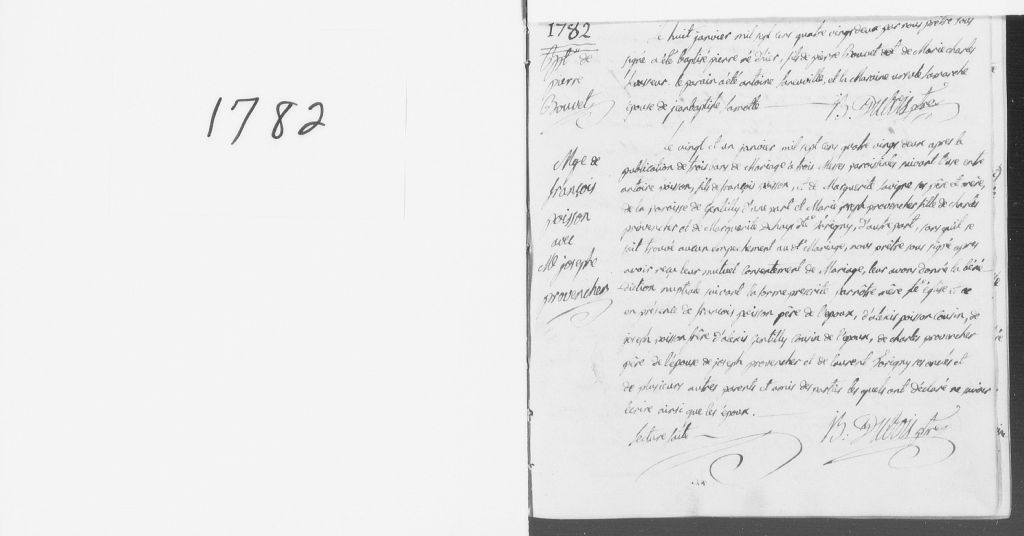 1782
1782
Bpt de
pierre
Bouvet
Le huit janvier mil sept cens quatre vingt deux par nous prêtre sous
signé a été baptisé pierre né d'hier, fils de pierre Bouvet et de Marie charles
le parain a été antoine et la Maraine
épouse de jean baptiste
B. Dubois ptre
Mge de
françois
poisson
avec
Me josephe
provencher
Le vingt et un janvier mil sept cens quatre vingt deux après la
publication de trois bans de Mariage à trois Messes paroissiales suivant l'use entre
antoine poisson, fils de françois poisson, et de Marguerite Lavigne ses père et mère,
de la paroisse de Gentilly d'une part et Marie joseph provencher fille de charles
provencher et de Marguerite d'autre part, sans qu'il se
soit trouvé aucun empechement au dt Mariage, nous prêtre sous signé après
avoir reçu leur mutuel consentement de Mariage, leur avons donné la béné-
diction nuptiale suivant la forme prescrite par nôtre mère ste église et ce
en présence de françois poisson père de l'époux, d'alexis poisson cousin, de
joseph poisson frère d'alexis Gentilly cousin de l'époux, de charles provencher
père de l'épouse de joseph provencher et de laurent et
de plusieurs autres parents et amis des parties les quels ont déclaré ne savoir
écrire ainsi que les époux.
lecture faite
B. Dubois ptre